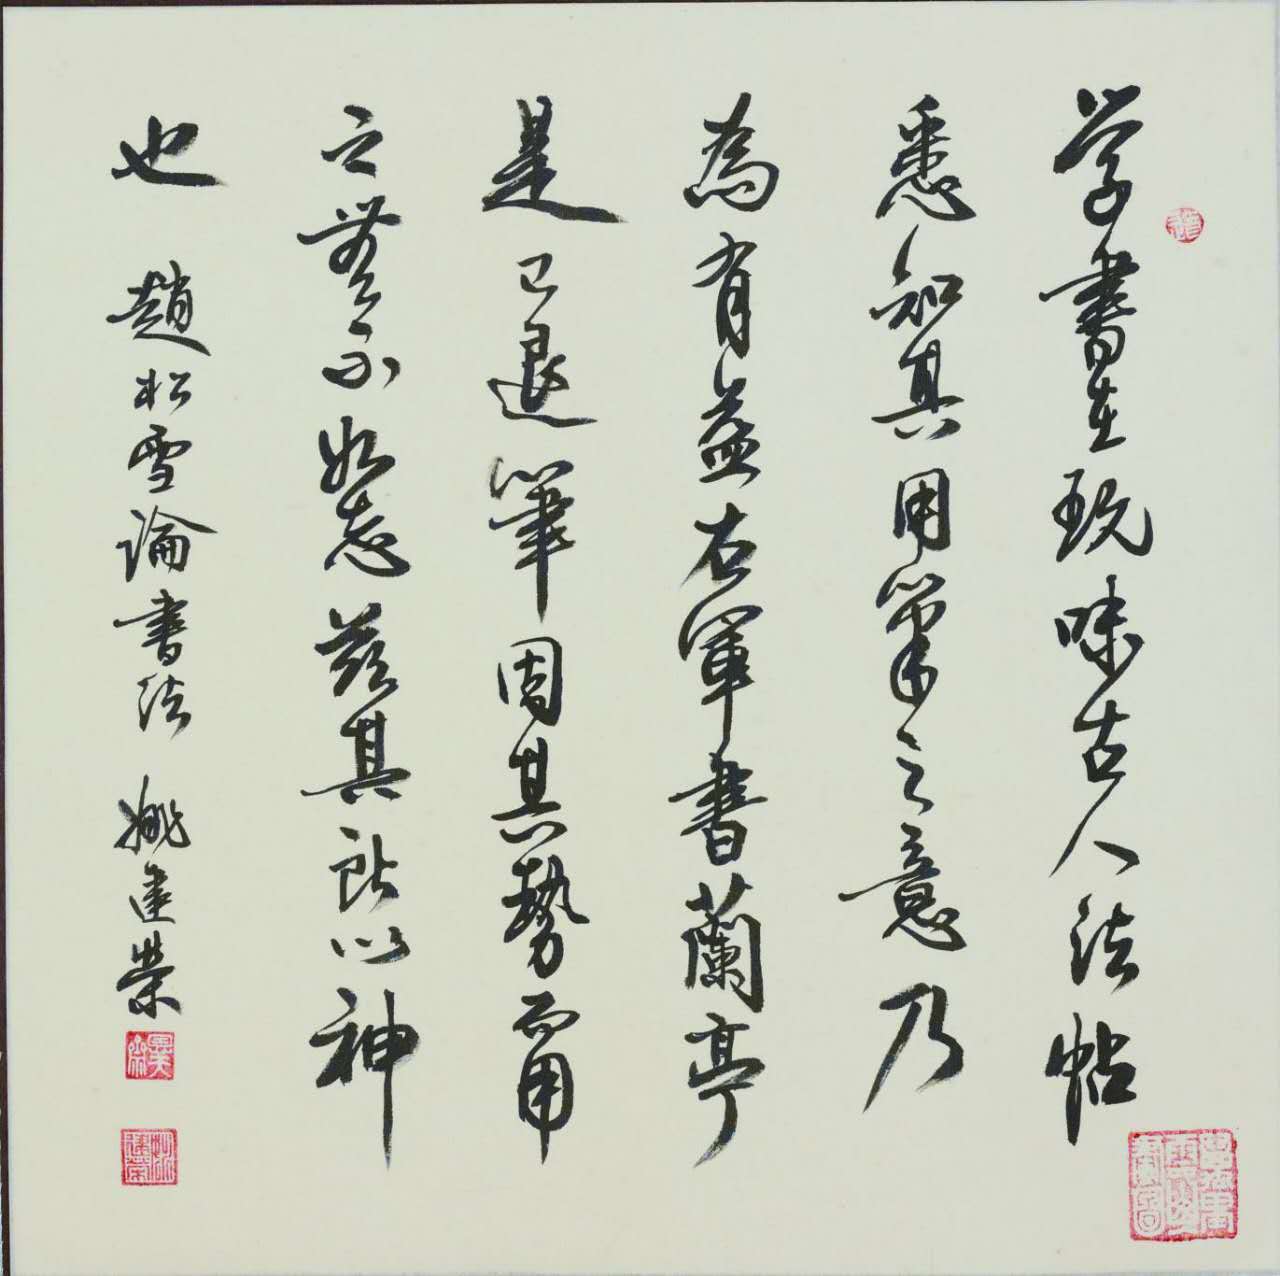 学書在玩味古人法帖
悉知其用筆之意乃
為有益右軍書蘭亭
是已退筆因其勢而用
之無不如志兹其所以神
也 趙松雪論書法 姚建榮